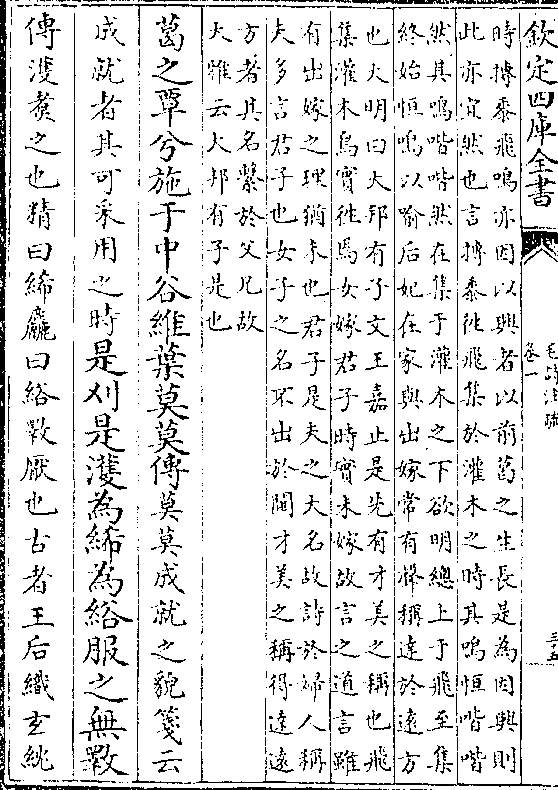 欽定四庫全書
毛詩注疏
卷一
時摶黍飛鳴亦因以興者以前葛之生長是為因興則
此亦宜然也言摶黍徃飛集於灌木之時其鳴恒喈喈
然其鳴喈喈然在集于灌木之下欲明總上于飛至集
終始恒鳴以喻后妃在家與出嫁常有聲稱達於遠方
也大明曰大邦有子文王嘉止是先有才美之稱也飛
集灌木鳥實徃焉女嫁君子時實未嫁故言之道言雖
有出嫁之理猶未也君子是夫之大名故詩於婦人稱
夫多言君子也女子之名不出於閫才美之稱得達遠
方者其名繫於父兄故
大雅云大邦有子是也
葛之覃兮施于中谷維葉莫莫傳莫莫成就之貌箋云
成就者其可采用之時是刈是濩為絺為綌服之無斁
傳濩煑之也精曰絺麤曰綌斁厭也古者王后織玄紞